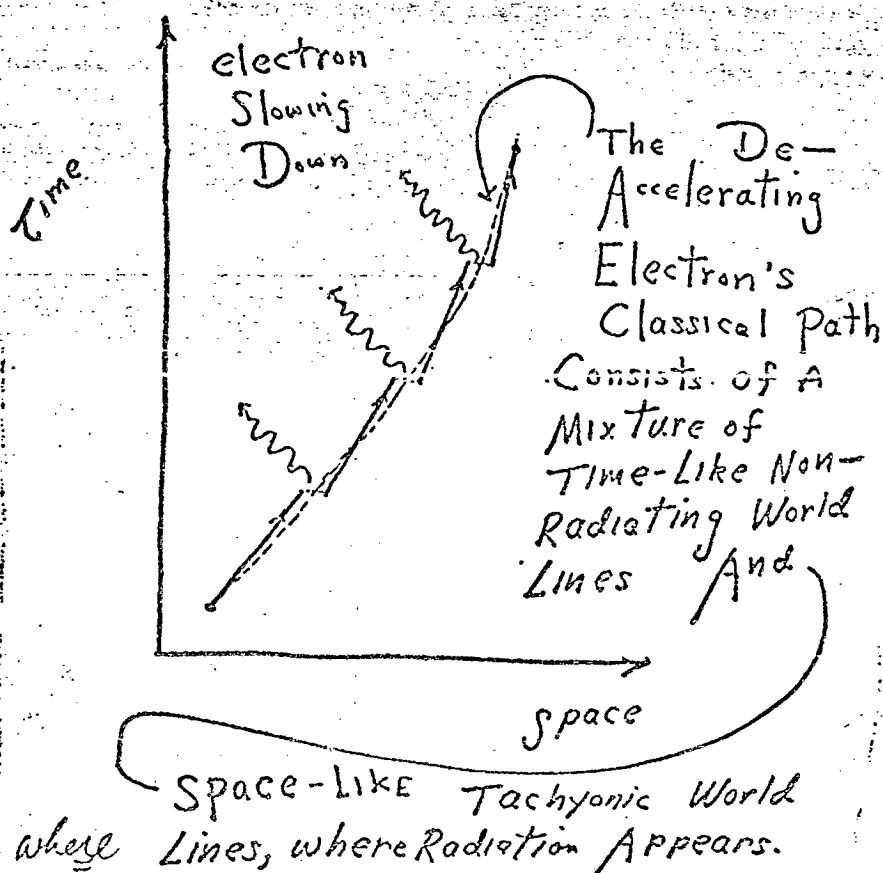 electron
Slowing
Down
Time
The De—
Accelerating
Electron's
Classical Path
Consists of A
Mixture of
Time-Like Non-
Radiating World
Lines And
Space
Space-Like Tachyonic World
where Lines, where Radiation Appears.